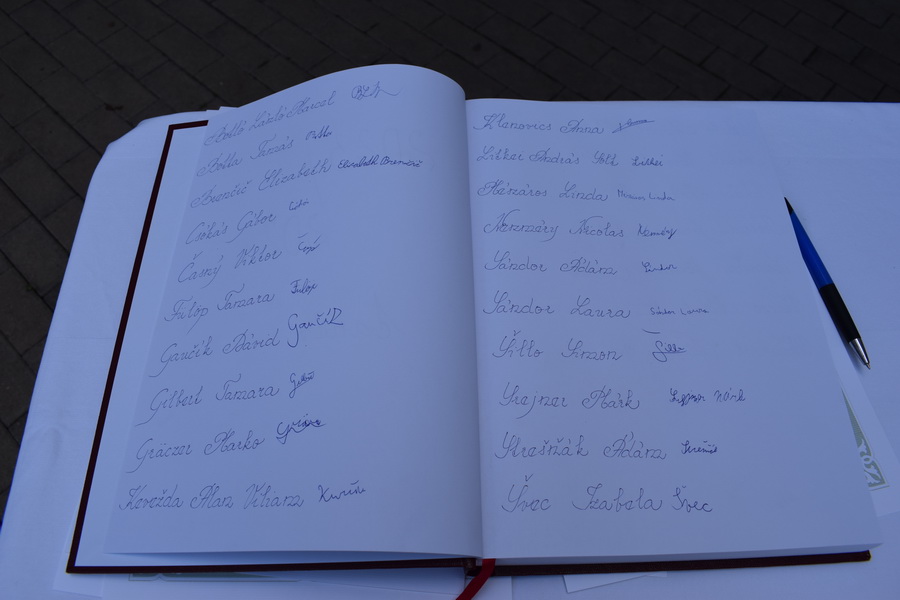 Bottó László Marcel
Botta Tamás
Brenčič Elizabeth Elizabeth Brenčič
Csókás Gábor
Časný Viktor
Fülöp Tamara Fülöp
Gaučík Dávid Gaučík
Gilbert Tamara
Gráczer Marko
Kevežda Alan Viliam
Klenovics Anna
Litkei András Zsolt Litkei
Mészáros Linda Mészáros Linda
Neszméry Nicolas
Sándor Ádám Sándor
Sándor Laura Sándor Laura
Šillo Simon Šillo
Štrajner Márk
Strešňák Ádám
Švec Izabela Švec